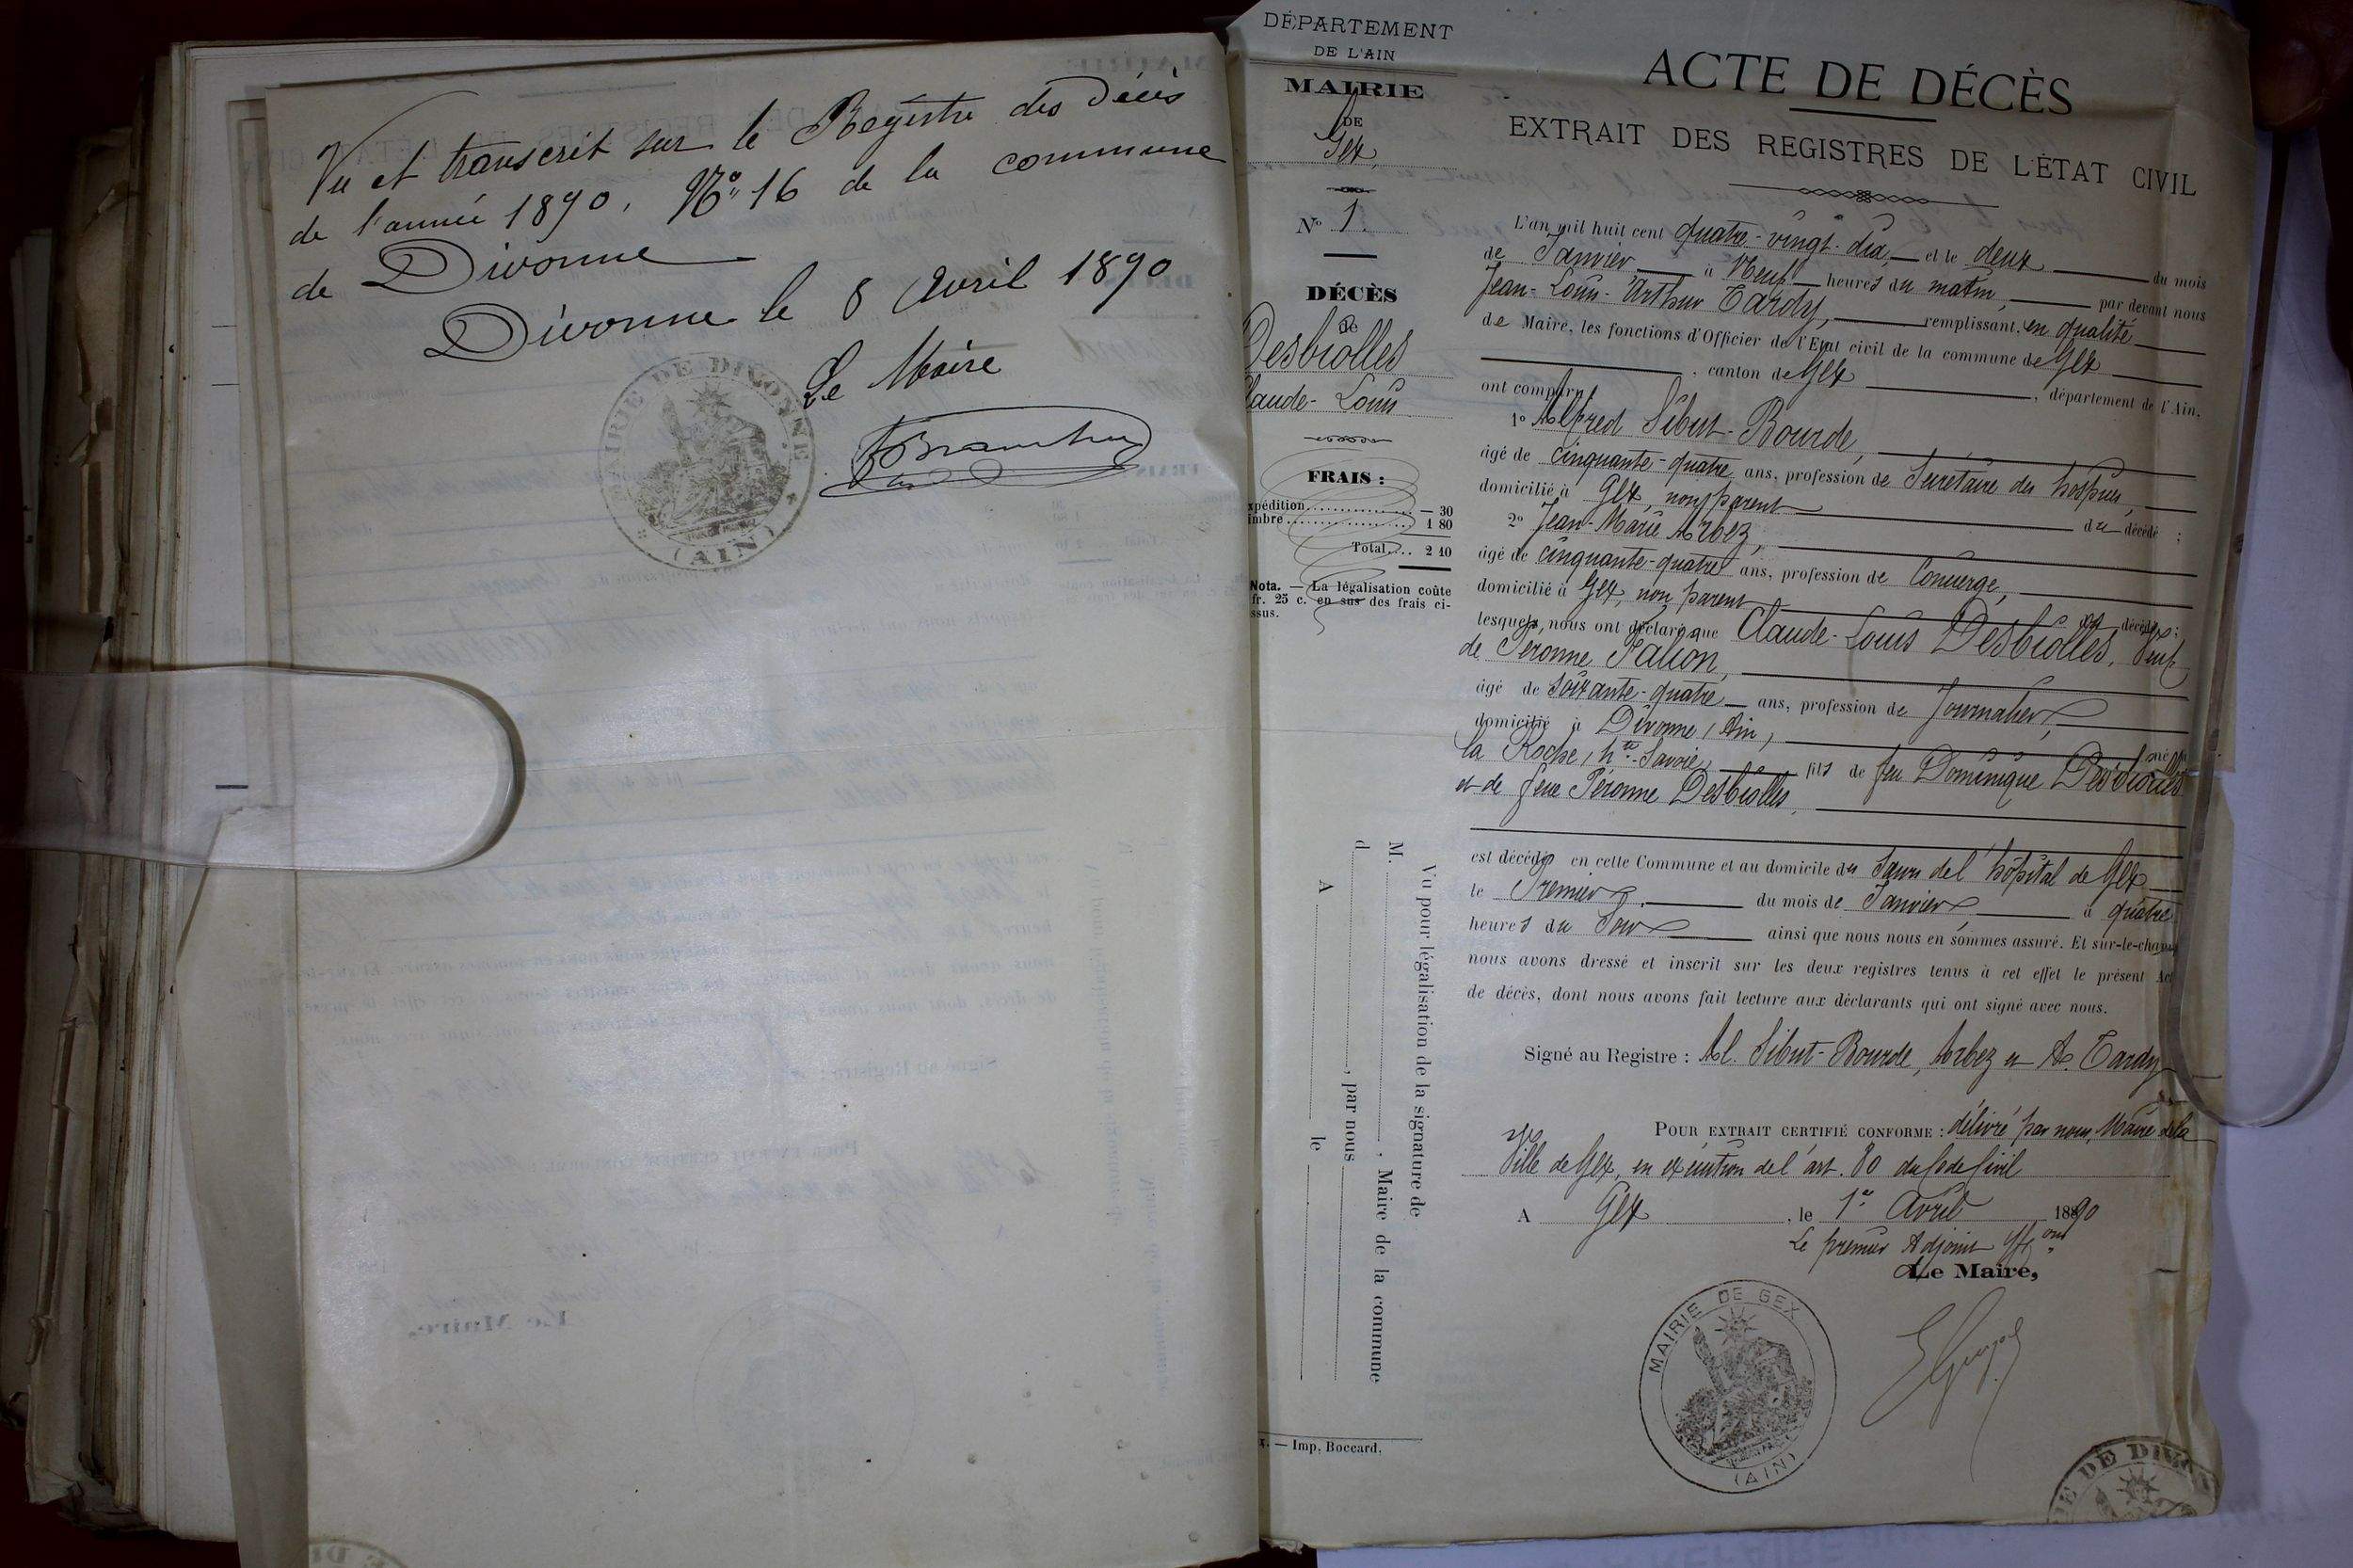 Vu et transcrit sur le Registre des Décès
de l'année 1890. N° 16 de la commune
de Divonne
Divonne le 8 Avril 1890
Le Maire
MAIRIE DE DIVONNE
(AIN)
DÉPARTEMENT
DE L'AIN
MAIRIE
DE
Gex
N° 1
DÉCÈS
de
Desbiolles
laude-Louis
FRAIS :
xpédition — 30
imbre 1 80
Total 2 10
Nota. — La légalisation coûte
fr. 25 c. en sus des frais ci-
ssus.
Vu pour légalisation de la signature de
M. , Maire de la commune
d , par nous
A le
— Imp. Boccard.
ACTE DE DÉCÈS
EXTRAIT DES REGISTRES DE L'ÉTAT CIVIL
L'an mil huit cent quatre-vingt-dix et le deux du mois
de Janvier à Neuf heures du matin, par devant nous
Jean-Louis-Arthur Tardy, remplissant, en qualité
de Maire, les fonctions d'Officier de l'État civil de la commune de Gex
, canton de Gex , département de l'Ain,
ont comparu
1° Alfred Sibut-Bourde,
âgé de cinquante-quatre ans, profession de Secrétaire des hospices,
domicilié à Gex, non parent du décédé ;
2° Jean-Marie Arbez,
âgé de cinquante-quatre ans, profession de Concierge,
domicilié à Gex, non parent du décédé ;
lesquels, nous ont déclaré que Claude-Louis Desbiolles, Veuf
de Péronne Pallion,
âgé de soixante-quatre ans, profession de Journalier,
domicilié à Divonne, Ain, né à
la Roche, hte-Savoie, fils de feu Dominique Desbiolles
et de feue Péronne Desbiolles,
est décédé en cette Commune et au domicile des Sœurs de l'hôpital de Gex
le Premier du mois de Janvier à quatre
heures du Soir ainsi que nous nous en sommes assuré. Et sur-le-champ
nous avons dressé et inscrit sur les deux registres tenus à cet effet le présent Act
de décès, dont nous avons fait lecture aux déclarants qui ont signé avec nous.
Signé au Registre : Al. Sibut-Bourde, Arbez et A. Tardy
POUR EXTRAIT CERTIFIÉ CONFORME : délivré par nous, Maire de la
Ville de Gex, en exécution de l'art. 80 du Code Civil
A Gex , le 1er Avril 1890
Le premier Adjoint
Le Maire,
MAIRIE DE GEX
(AIN)
DE DIVON